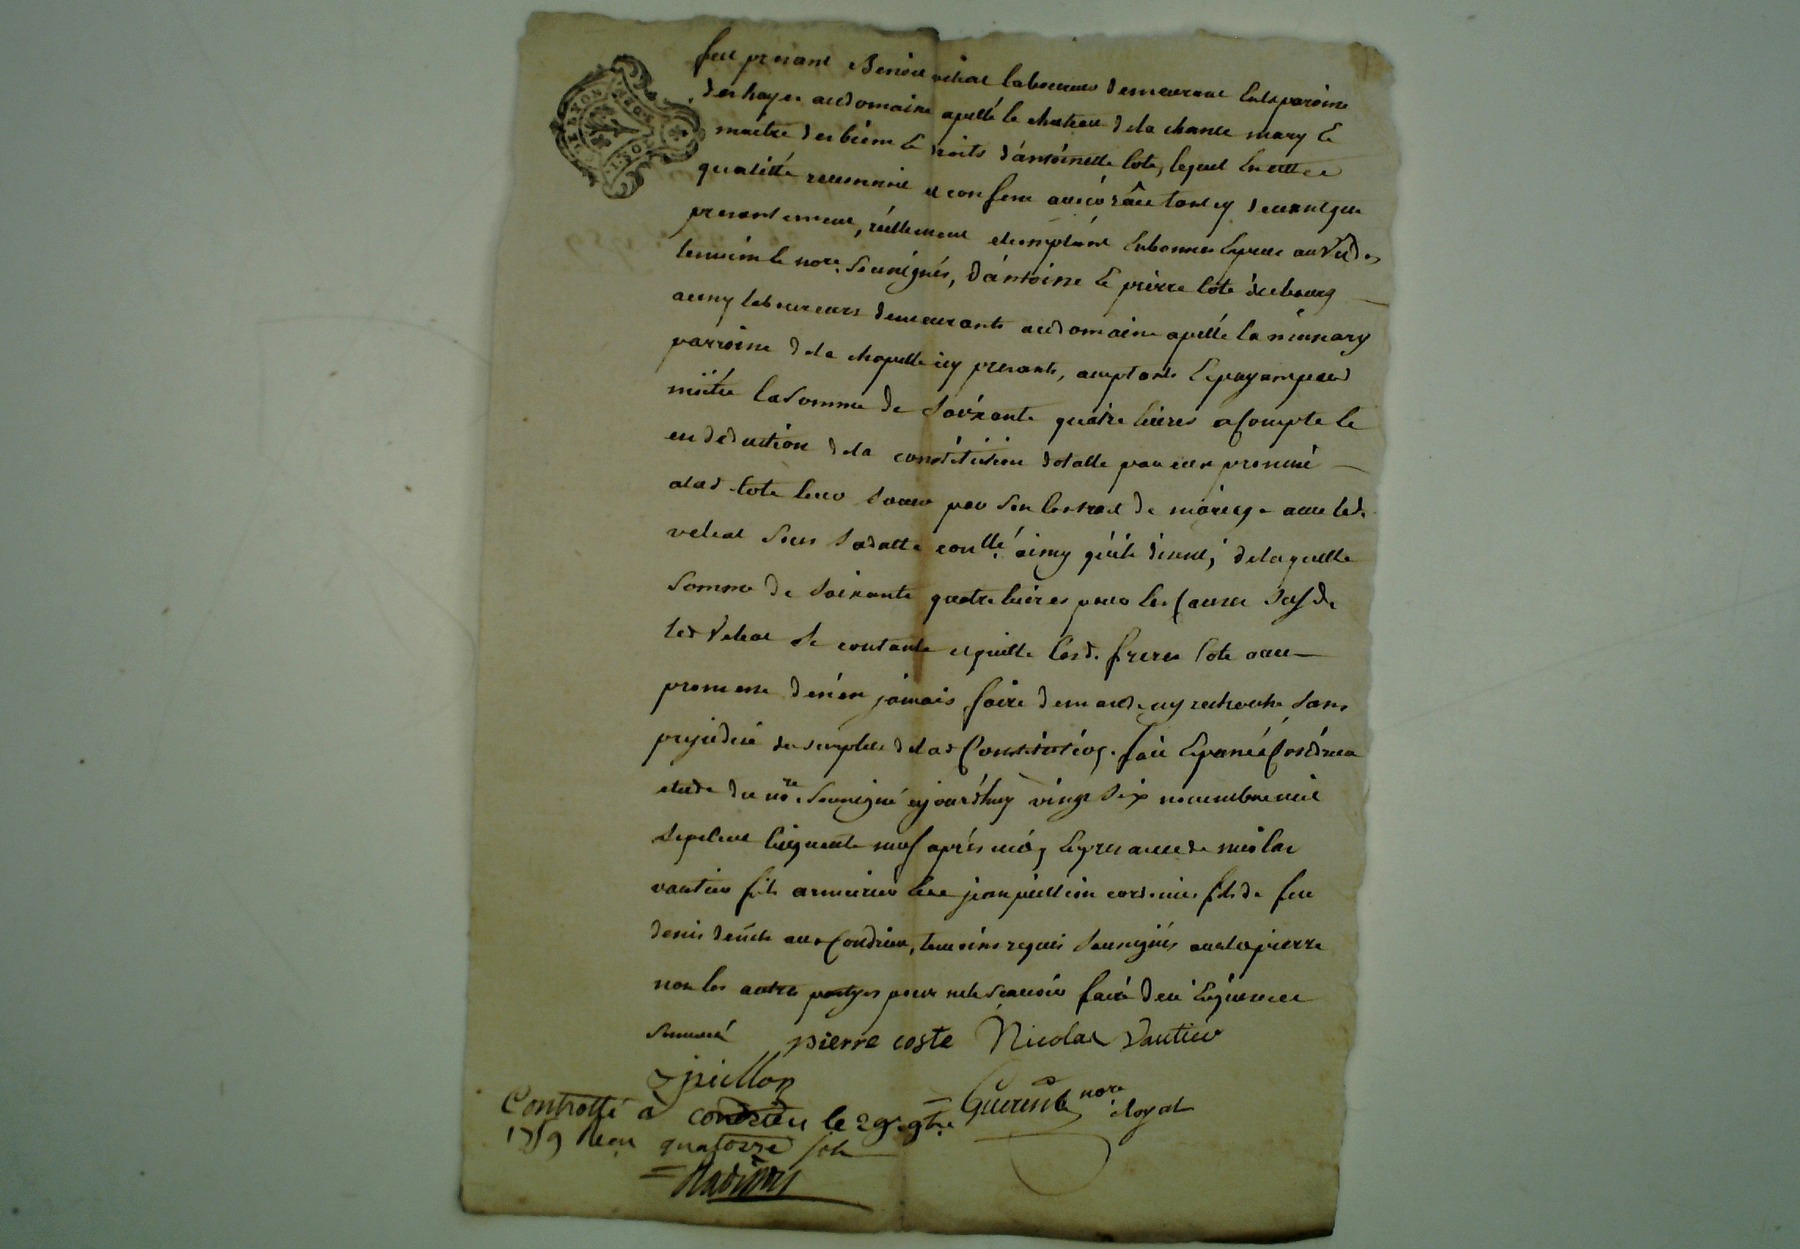 fut présant Benoit velrat laboureur demeurant En la paroisse
des hayes au domaine apellé le chateau de la chance mary &
maitre des biens & droits d'antoinette Cote, lequel En cette
qualitté reconnoit et confesse avoir tant cy devant que
présentement, réellement et comptant En bonnes Especes au Vû des
temoins & nore. soussignés, d'antoine & pierre Cote
aussy laboureurs demeurants au domaine apellé la
parroisse de la chapelle icy présants, acceptants & payants pour
la somme de Soixante quatre livres a Compte &
en déduction de la constitution dotalle par eux promise
a lad. Cote leur soeur par son Contract de mariage avec led.
velrat sous sa datte conllé. ainsy qu'ils disent, de laquelle
Somme de soixante quatre livres pour les Causes susd.
led. Velrat se contante et quitte lesd. freres Cote avec
promesse de n'en jamais faire demande ny recherche sans
prejudice du surplus de lad. Constitution. fait & passé à Condrieu
etude du nore. soussigné cejourd'huy vingt six novembre mil
sept cent Cinquante neuf après midy En présance de nicolas
vautier fils armurier & jean pillion cordonnier fils de feu
denis dud. Condrieu, temoins requis soussignés avec led. pierre
non les autres partyes pour ne le scavoir faire de ce Enquises &
sommés pierre coste Nicolas Vautier
J pillon
Guerin nore. Royal
Controllé a condrieu le 29e. 9bre
1759 Reçu quatorze sols